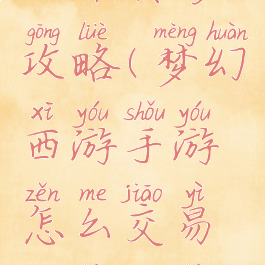 gōng lüè mèng huàn
攻略(梦幻
xī yóu shǒu yóu
西游手游
zěn me jiāo yì
怎么交易